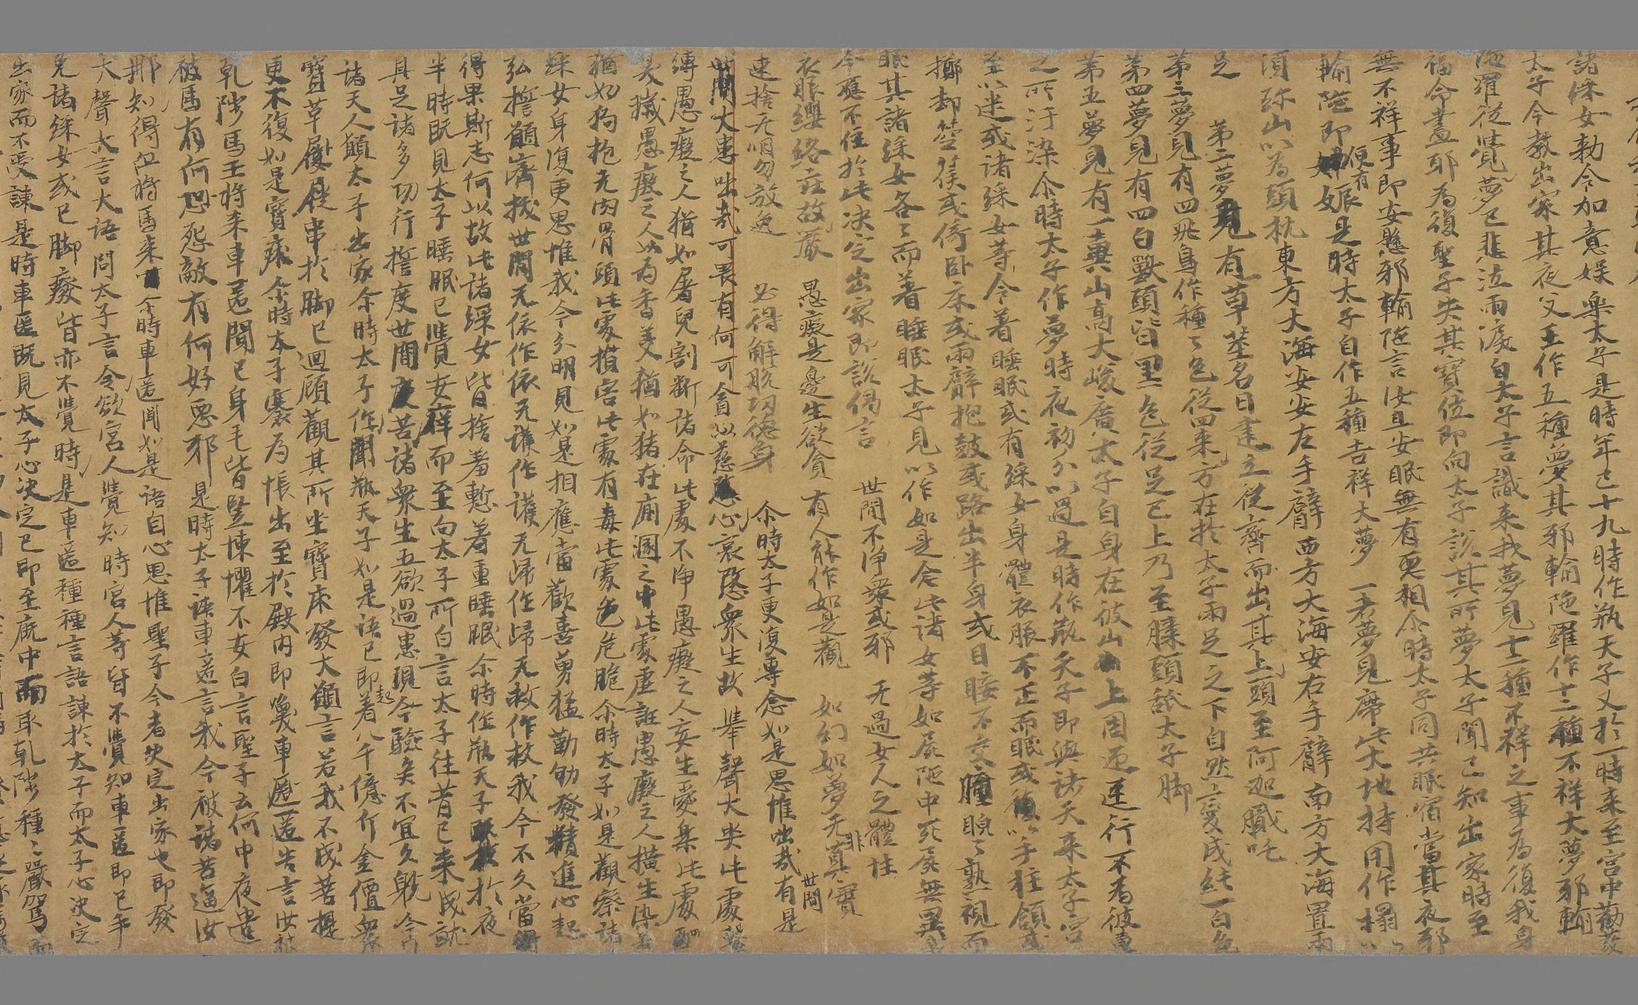 諸婇女勅令加意娱樂太子是時年已十九時作瓶天子又於一時来至宮中勸發
太子今教出家其夜父王作五種夢其耶輸陁羅作十二種不祥大夢耶輸
陁羅從覺夢已悲泣雨淚白太子言識来我夢見十二種不祥之事為復我身
福令盡耶為復聖子失其寶位即向太子説其所夢太子聞已知出家時至
無不祥事即安慰邪輸陁言汝且安眠無有惡相尒時太子同共眠宿當其夜邪
輸陁即便有娠是時太子自作五種吉祥大夢 一者夢見席此大地持用作榻以
須弥山以為頭枕東方大海安安左手臂西方大海安右手臂南方大海置兩
足 第二夢見有草莖名曰建立從齊而出其上頭至阿迦膩吒
第三夢見有四飛鳥作種〻色從四来方在於太子兩足之下自然變成純一白色
第四夢見有四白獸頭皆黑色從足已上乃至膝頭舐太子脚
第五夢見有一糞山高大峻廣太子自身在彼山上周迊逕行不為彼糞
之所汙染尒時太子作夢時夜初分以過是時作瓶天子即與諸天来太子宮
至以迷或諸綵女等令着睡眠或有綵女身體衣服不正而眠或復以手拄頷或
擲却箜篌或倚卧床或兩臂抱鼓或路出半身或目睡不交瞳睨〻熟視而
眠其諸綵女各〻而着睡眠太子見以作如是念此諸女等如屍陁中死屍無異我
今應不住於此决定出家即説偈言 世間不浄衆或邪 无過女人之體性
衣服纓絡庄故嚴 愚癡是邊生欲貪 有人能作如是觀 如幻如夢无非真實
速捨无明勿放逸 必得解脱功德身 尒時太子更復專念如是思惟咄哉有是世間
世間大患咄哉可畏有何可貪以慈悲心哀愍衆生故 舉聲大哭此處繫
縛愚癡之人猶如屠兒割斷諸命此處不浄愚癡之人妄生愛樂此處
臭穢愚癡之人以為香美猶如猪在廁溷之中此處虛誑愚癡之人横生染著
猶如狗抱无肉骨頭此處損害此處有毒此處危脆尒時太子如是觀察諸
綵女身復更思惟我今分明見如是相應當歡喜勇猛勤劬發精進心起
弘誓願濟拔世間无依作依无護作護无歸作歸无救作救我今不久當
得果斯志何以故此諸綵女皆捨着慙着重睡眠尒時作瓶天子於夜
半時既見太子睡眠已覺安庠而至向太子所白言太子往昔已来成就
具足諸多功行誓度世間苦諸衆生五欲過患現今驗矣不宜久躭今
諸天人願太子出家尒時太子作聞瓶天子如是語已即起着八千億斤金價衆
寶草屣徒串於脚已迴顧觀其所坐寶床發大願言若我不成菩提
更不復如是寶床尒時太子褰為帳出至於殿内即喚車匿匿告言汝被
乾陟馬王將来車匿聞已身毛皆竪悚懼不安白言聖子云何中夜遣
被馬有何恐怨敵有何好惡邪 是時太子語車匿言我今被諸苦逼汝
那知得但將馬来 尒時車匿聞如是語自心思惟聖子今者决定出家也即發
大聲大言大語問太子言令欲宮人覺知時宮人等皆不覺知車匿即已手
見諸綵女或已脚癈皆亦不覺時是車匿種種言語諫於太子而太子心决定
出家而不受諫是時車匿既見太子心决定已即至廐中而取乹陟種〻嚴駕